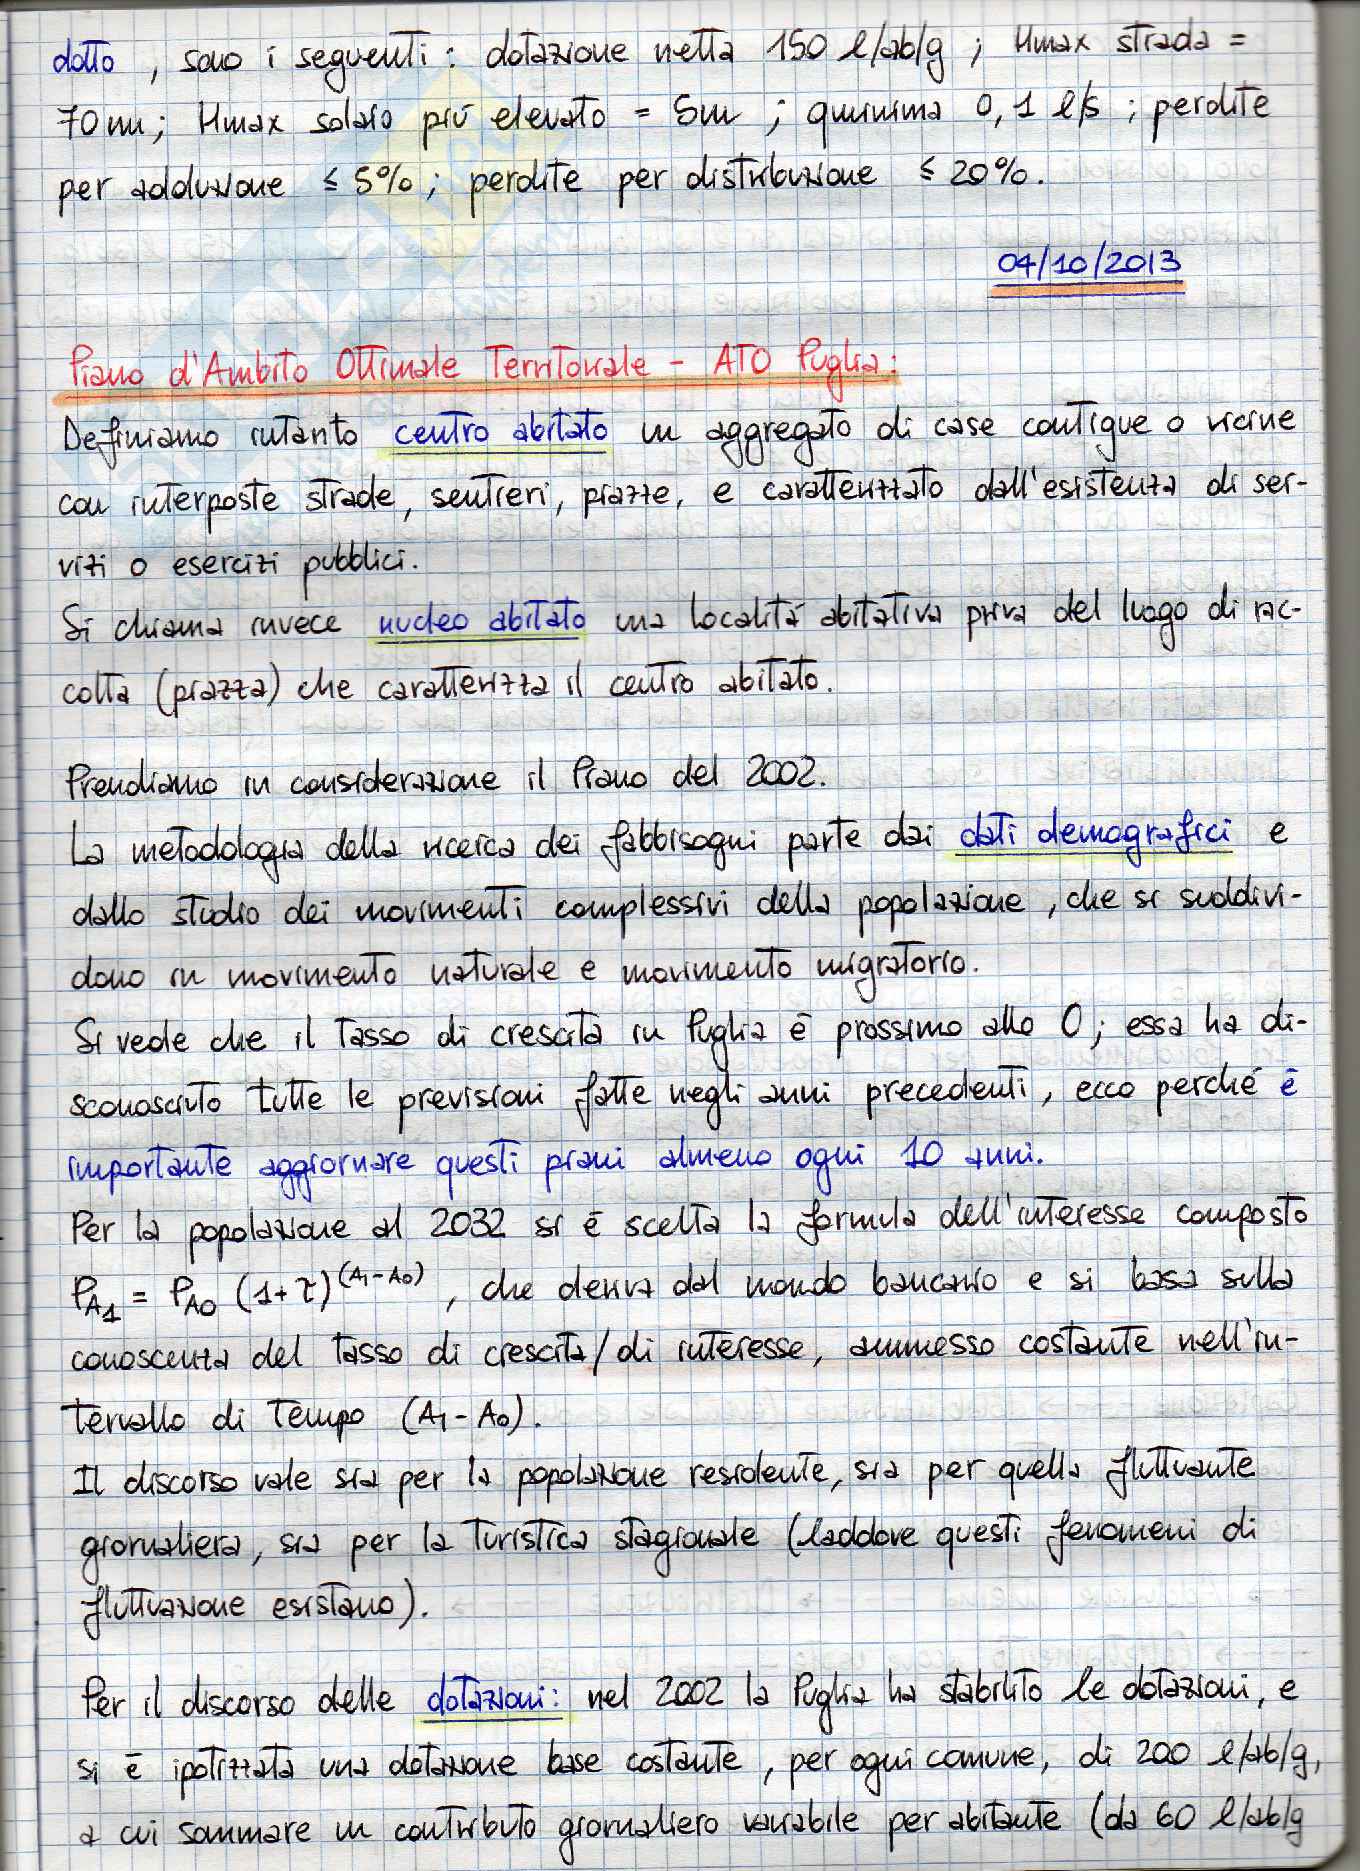 dotto, sono i seguenti: dotazione netta 150 l/ab/g; Hmax strada =
70m; Hmax solaio più elevato = 5m; qminima 0,1 l/s; perdite
per adduzione ≤ 5%; perdite per distribuzione ≤ 20%.
04/10/2013
Piano d'Ambito Ottimale Territoriale - ATO Puglia:
Definiamo intanto centro abitato un aggregato di case contigue o vicine
con interposte strade, sentieri, piazze, e caratterizzato dall'esistenza di ser-
vizi o esercizi pubblici.
Si chiama invece nucleo abitato una località abitativa priva del luogo di rac-
colta (piazza) che caratterizza il centro abitato.
Prendiamo in considerazione il Piano del 2002.
La metodologia della ricerca dei fabbisogni parte dai dati demografici e
dallo studio dei movimenti complessivi della popolazione, che si suddivi-
dono in movimento naturale e movimento migratorio.
Si vede che il tasso di crescita in Puglia è prossimo allo 0; essa ha di-
sconosciuto tutte le previsioni fatte negli anni precedenti, ecco perché è
importante aggiornare questi piani almeno ogni 10 anni.
Per la popolazione al 2032 si è scelta la formula dell'interesse composto
P_A1 = P_A0 (1+τ)^(A1-A0), che deriva dal mondo bancario e si basa sulla
conoscenza del tasso di crescita/di interesse, ammesso costante nell'in-
tervallo di tempo (A1-A0).
Il discorso vale sia per la popolazione residente, sia per quella fluttuante
giornaliera, sia per la turistica stagionale (laddove questi fenomeni di
fluttuazione esistano).
Per il discorso delle dotazioni: nel 2002 la Puglia ha stabilito le dotazioni, e
si è ipotizzata una dotazione base costante, per ogni comune, di 200 l/ab/g,
a cui sommare un contributo giornaliero variabile per abitante (da 60 l/ab/g